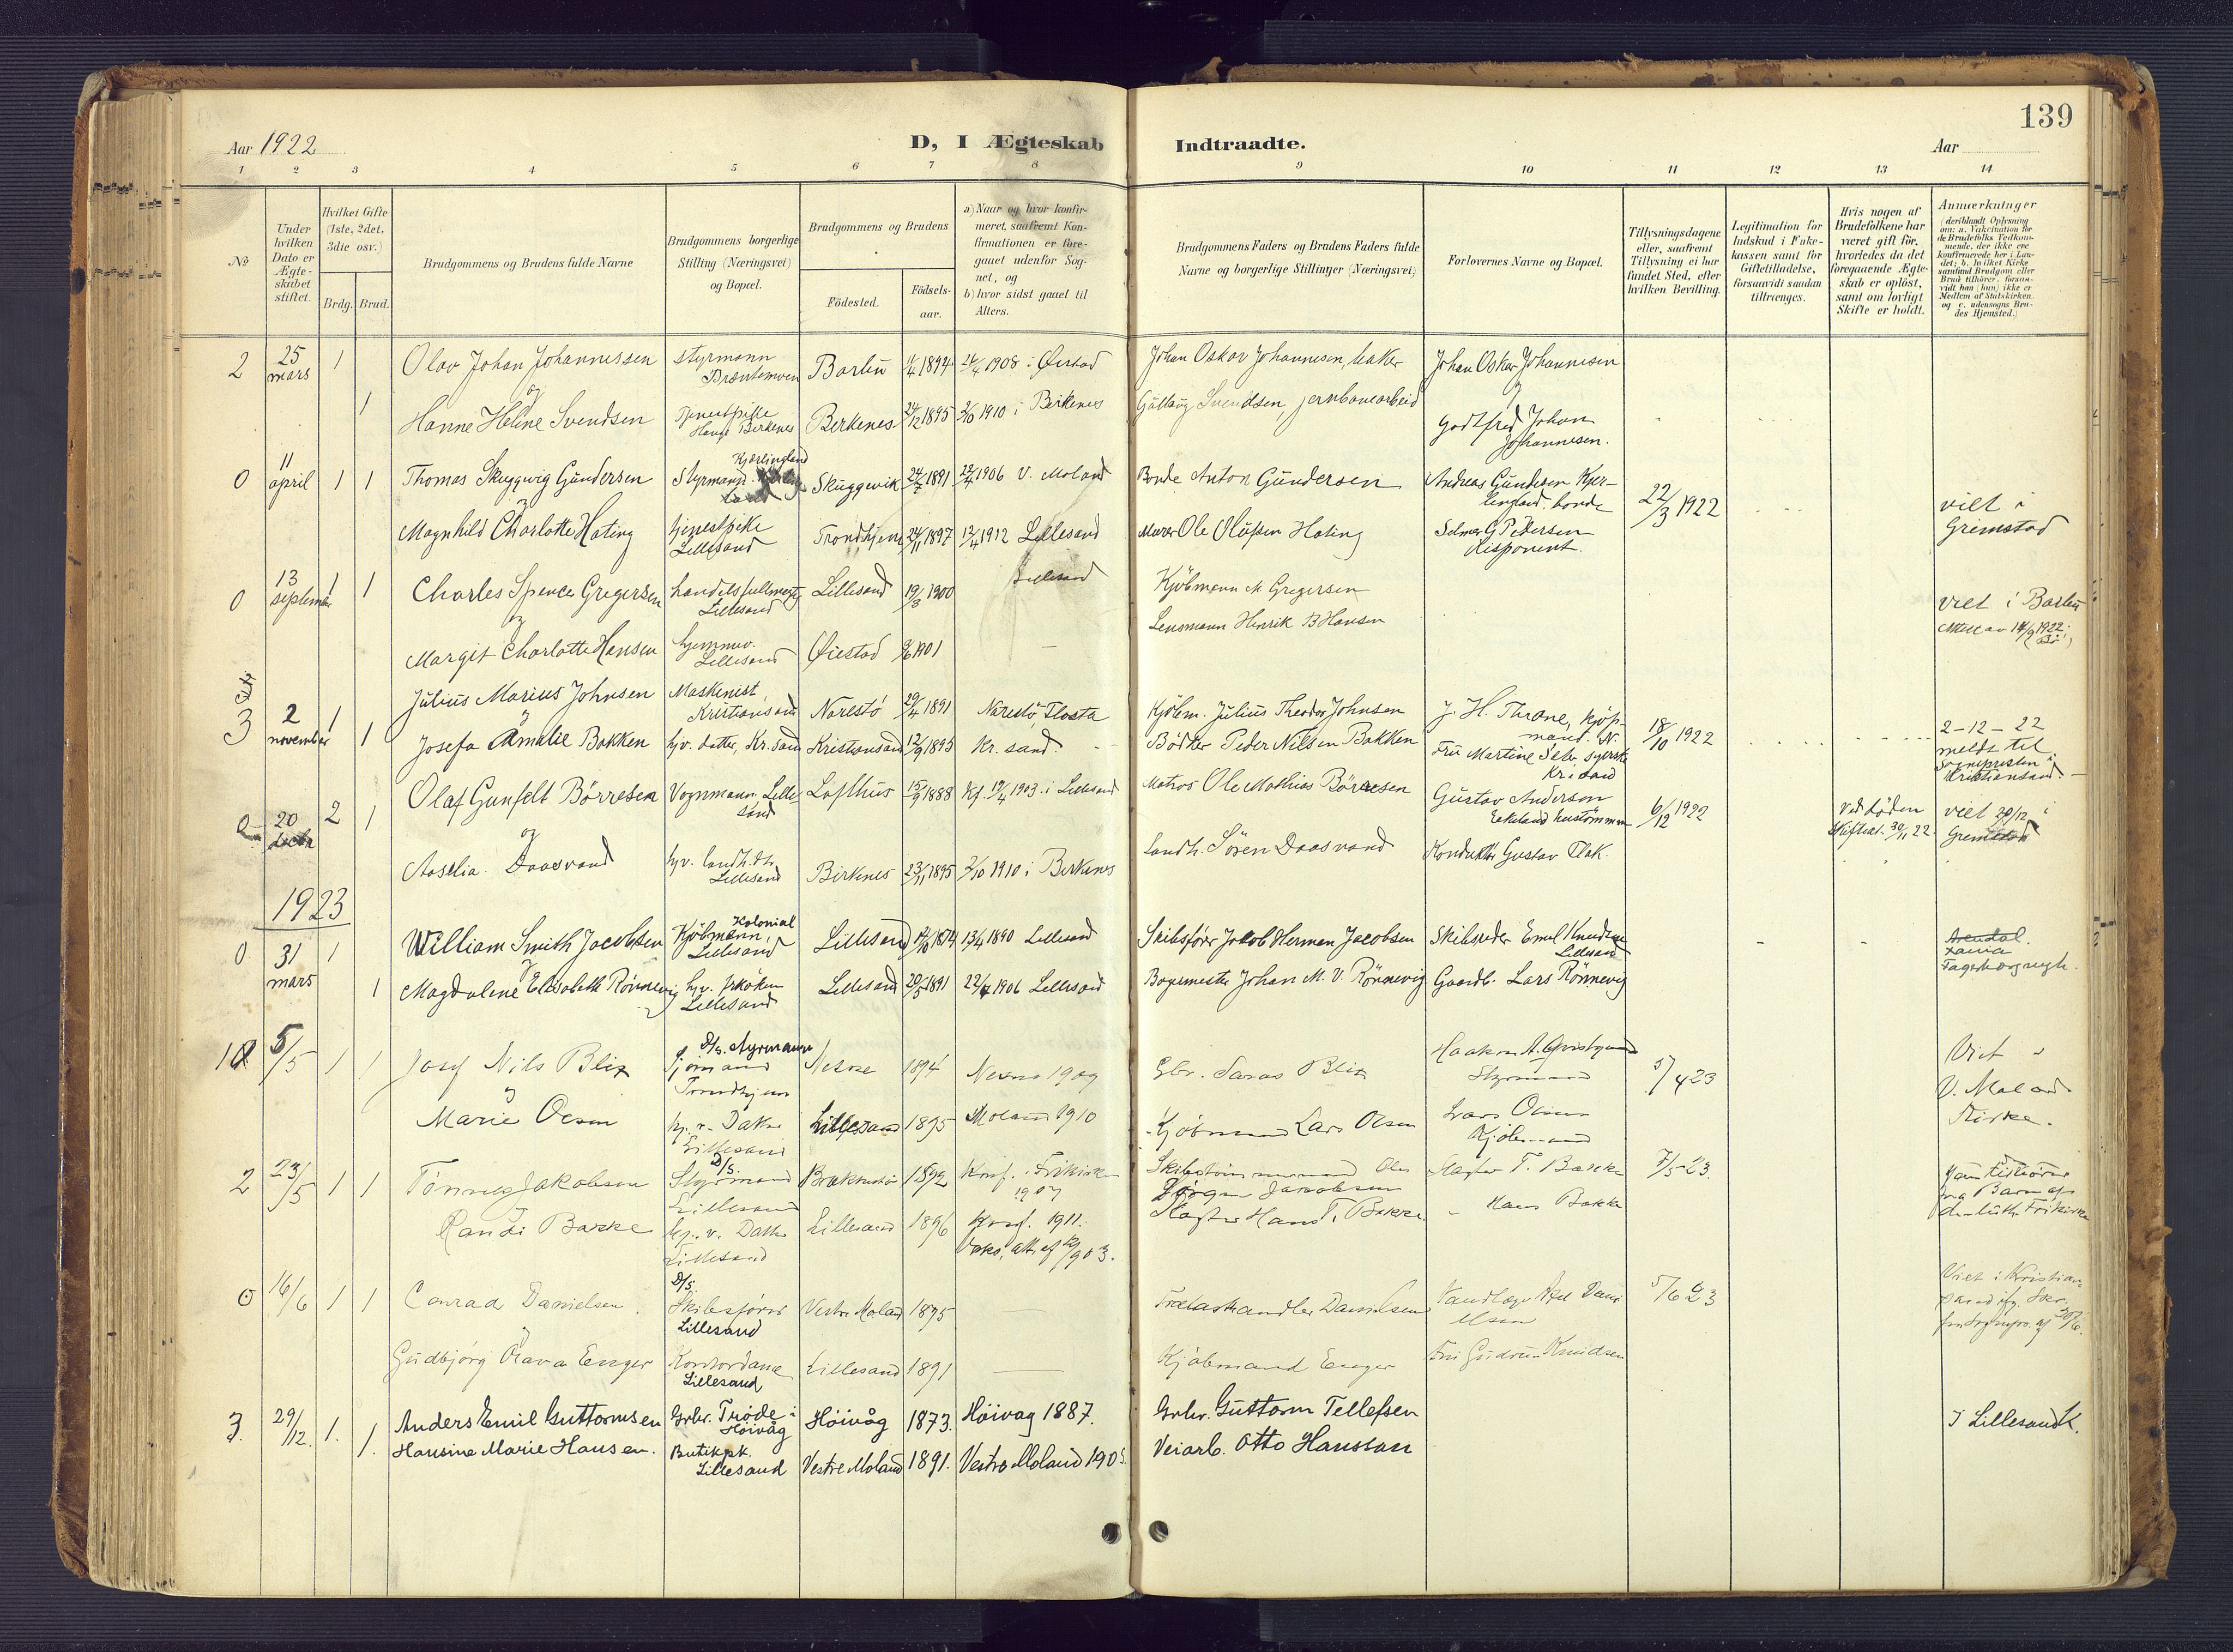 139
Aar 1922
D, I Ægteskab Indtraadte.
Aar
1 2 3 4 5 6 7 8 9 10 11 12 13 14
No
Under hvilken Dato er Ægte-skabet stiftet.
Hvilket Gifte (1ste, 2det, 3die osv.)
Brdg. Brud.
Brudgommens og Brudens fulde Navne
Brudgommens borgerlige Stilling (Næringsvei) og Bopæl.
Brudgommens og Brudens
Födested.
Födsels-aar.
a) Naar og hvor konfir-meret, saafremt Kon-firmationen er fore-gaaet udenfor Sog-net, og
b) hvor sidst gaaet til Alters.
Brudgommens Faders og Brudens Faders fulde Navne og borgerlige Stillinger (Næringsvei)
Forlovernes Navne og Bopæl.
Tillysningsdagene eller, saafremt Tillysning ei har fundet Sted, efter hvilken Bevilling.
Legitimation for Indskud i Enke-kassen samt for Giftetilladelse, forsaavidt saadan tiltrænges.
Hvis nogen af Brudefolkene har været gift för, hvorledes da det foregaaende Ægte-skab er oplöst, samt om lovligt Skifte er holdt.
Anmærkninger
(deriblandt Oplysning om: a. Vakcination for de Brudefolks Vedkom-mende, der ikke ere konfirmerede her i Lan-det; b. hvilket Kirke-samfund Brudgom eller Brud tilhörer, forsaa-vidt han (hun) ikke er Medlem af Statskirken, og c. udensogns Bru-des Hjemsted.)
2 25 mars 1 Olav Johan Johannessen styrmann Barbu 1894 1908 i Øiestad Johan Oskar Johannesen, baker Johan Oskar Johannesen
og
1 Hanne Heline Svendsen Tjenestpike Birkenes Birkenes 24/12 1895 2/10 1910 i Birkenes Svendsen, jernbanearbeid Godtfred Johan Johannesen.
0 11 april 1 1 Thomas Skuggevig Gundersen Styrmand Kjærlingland Skuggevik 24/7 1891 22/4 1906 V. Moland Bonde Anton Gundersen Andreas Gundersen Kjær-lingland. bonde 22/3 1922 viet i Grimstad
Magnhild Charlotte Hoting tjenestpike Lillesand Trondhjem 24/11 1897 1912 Lillesand Murer Ole Olufsen Hoting Selmer G Pedersen disponent.
0 13 september 1 1 Charles Spence Gregersen handelsfullmegtig Lillesand Lillesand 19/3 1900 Lillesand Kjöbmann M Gregersen viet i Barbu
og
Margit Charlotte Hansen hjemmev. Lillesand Øiestad 1901 Lensmann Henrik B Hansen
3 2 november 1 Julius Marius Johnsen Maskinist, Kristiansand Narestö 29/4 1891 Narestö, Flosta Kjöbm. Julius Theodor Johnsen J. H. Thrane, kjöp-mand. 18/10 1922 2-12-22 meldt til Sognepresten i Kristiansand.
og
1 Josefa Amalie Bakken hjv. datter, Kr.sand Kristiansand 12/9 1895 Kr. sand. Bödker Peder Nilsen Bakken Fru Martine syerske Kr.sand
0 20 2 1 Olaf Gunfelt Börresen Vognmann. Lillesand Lofthus 15/9 1888 Kf. 19/4 1903 i Lillesand Matros Ole Mathias Börresen Gustav Anderson 6/12 1922 Ved döden Skifteat. 30/11 22. viet 20/12 i Grimstad
og
Aaselia Daasvand hjv. landh.dtr. Lillesand Birkenes 23/11 1895 2/10 1910 i Birkenes Landh. Sören Daasvand Konduktör Gustav Flak.
1923
0 31 mars 1 William Smith Jacobsen Kolonial Kjöbmann, Lillesand Lillesand 1874 13/4 1890 Lillesand Skibsförer Jakob Herman Jacobsen Skibsreder Emil Knudsen Lillesand Arendal.
og
1 Magdalene Elisabeth Rönnevig hjv. fröken Lillesand Lillesand 20/5 1891 22/4 1906 Lillesand Johan M. V. Rönnevig Gaardb. Lars Rönnevig
10 5/5 1 1 Josef Nils Blix D/s. styrmann Sjömand Trondhjem Nesne 1894 Nesne 1909 Gbr. Blix Haakon A. Styrmand 5/4 23 Viet i V. Moland Kirke.
og
Marie Olsen hj. v. Datter Lillesand Lillesand 1895 Moland 1910 Kjöbmand Lars Olsen Lars Olsen Kjöbmand
2 23/5 1 1 Tönnes Jakobsen D/s. Styrmand Lillesand 1892 Konf. i Frikirken 1907 Skibstömmermand Ole Jörgen Jacobsen T. Bakke 7/5-23.
Randi Bakke hj. v. Datter Lillesand Lillesand 1896 Konf. 1911. Hans T. Bakke Hans Bakke
0 16/6 1 1 Conrad Danielsen. D/s. Skibsförer Lillesand Vestre Moland 1895 Trælasthandler Danielsen Tandlæge Danielsen 5/6 23 Viet i Kristiansand
og
Gudbjörg Olava Enger Kontordame Lillesand Lillesand 1891 Kjöbmand Enger Gudrun Knudsen
3. 29/12. 1. Anders Emil Guttormsen Grbr. Tröde i Höivåg Höivåg 1873. Höivag 1887. Grbr. Guttorm Tellefsen I Lillesand K.
1. Hansine Marie Hansen. Butikpk. Lillesand Vestre Moland 1891. Vestre Moland 1905. Veiarb. Otto Hanssan